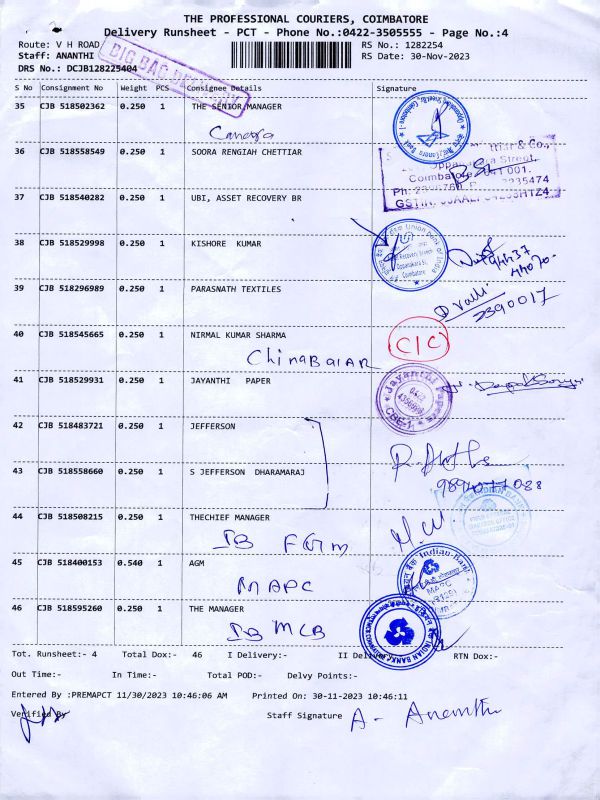 THE PROFESSIONAL COURIERS, COIMBATORE
Delivery Runsheet - PCT - Phone No.:0422-3505555 - Page No.:4
Route: V H ROAD
RS No.: 1282254
Staff: ANANTHI
RS Date: 30-Nov-2023
DRS No.: DCJB128225404
BIG BAG
S No Consignment No Weight PCS Consignee Details Signature
35 CJB 518502362 0.250 1 THE SENIOR MANAGER
Canara
36 CJB 518558549 0.250 1 SOORA RENGIAH CHETTIAR
& Co.,
Street,
Coimbatore 641 001.
37 CJB 518540282 0.250 1 UBI, ASSET RECOVERY BR
38 CJB 518529998 0.250 1 KISHORE KUMAR
Union Bank of India
Recovery Branch
Oppanakara St,
Coimbatore
94437
44070
39 CJB 518296989 0.250 1 PARASNATH TEXTILES
Valli
2390017
40 CJB 518545665 0.250 1 NIRMAL KUMAR SHARMA
ChinaBaIAR
C/C
41 CJB 518529931 0.250 1 JAYANTHI PAPER
Jayanthi Papers
0422
4356998
CBE-1
42 CJB 518483721 0.250 1 JEFFERSON
43 CJB 518558660 0.250 1 S JEFFERSON DHARAMARAJ
INDIAN BANK
44 CJB 518508215 0.250 1 THECHIEF MANAGER
IB FGM
45 CJB 518400153 0.540 1 AGM
MAPC
Indian Bank
MAPC
46 CJB 518595260 0.250 1 THE MANAGER
IB MCB
INDIAN BANK
Tot. Runsheet:- 4 Total Dox:- 46 I Delivery:- II Delivery RTN Dox:-
Out Time:- In Time:- Total POD:- Delvy Points:-
Entered By :PREMAPCT 11/30/2023 10:46:06 AM Printed On: 30-11-2023 10:46:11
Verified By
Staff Signature A- Ananthi